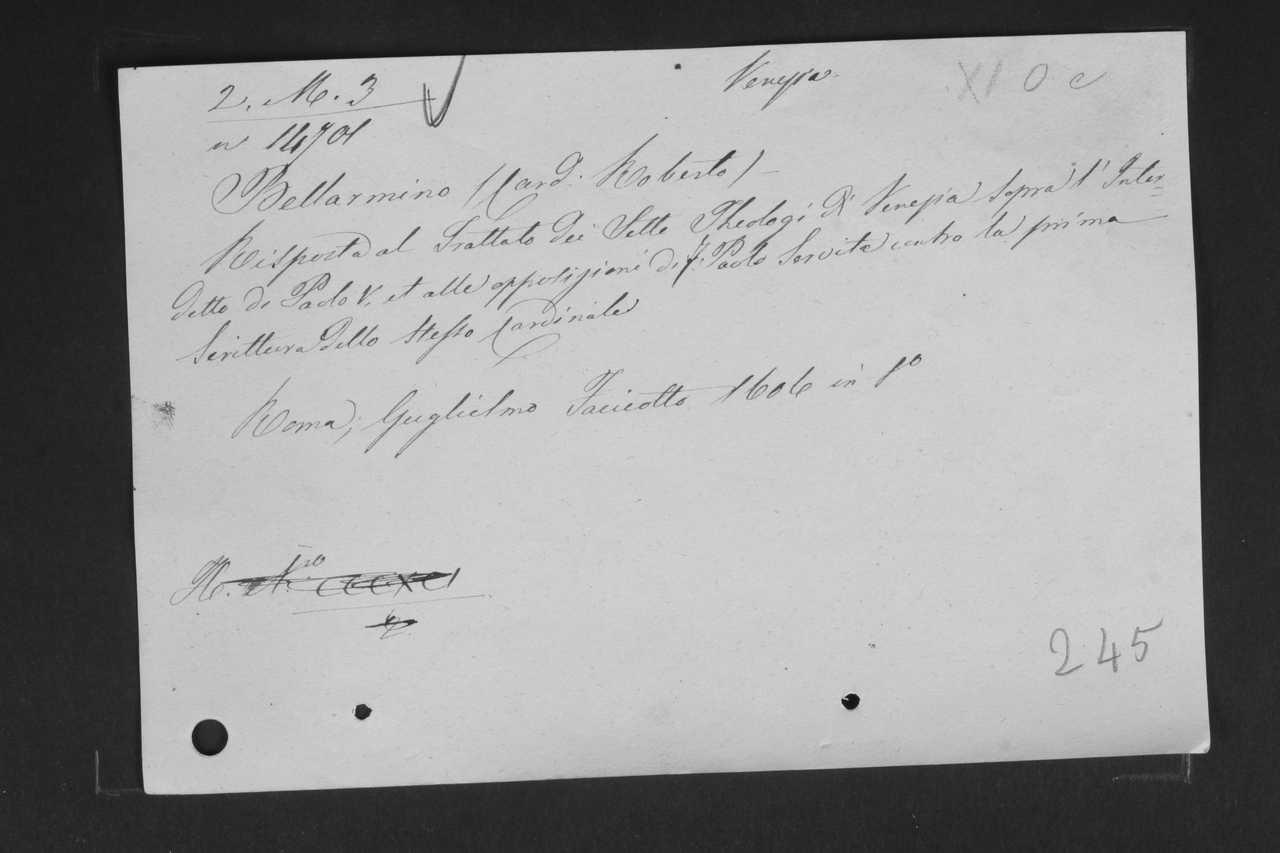 2. M. 3
Venezia
XI O c
n 14701
Bellarmino (Card. Roberto) –
Risposta al Trattato dei Sette Theologi di Venezia sopra l'Inter=
detto di Paolo V. et alle opposizioni di F. Paolo Servita contro la prima
Scrittura dello stesso Cardinale
Roma, Guglielmo Facciotto 1606 in 4º
H.
245